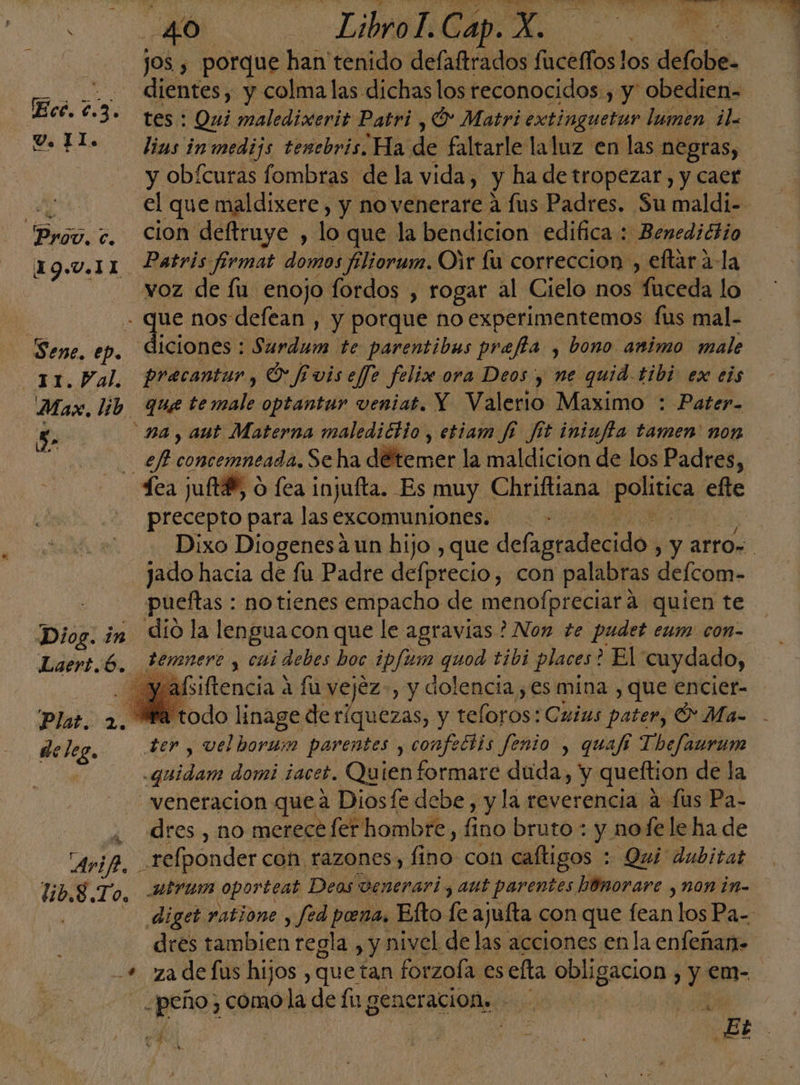 40 Libro I. Cap. X.
jos, porque han tenido desastrados sucessos los desobe-
dientes, y colma las dichas los reconocidos, y obedien-
Ecc. c.3. tes: Qui maledixerit Patri, & Matri extinguetur lumen il-
v. II. lius in medijs tenebris. Ha de faltarle la luz en las negras,
y obscuras sombras de la vida, y ha de tropezar, y caer
el que maldixere, y no venerare à sus Padres. Su maldi-
Prov. c. cion destruye, lo que la bendicion edifica: Benedictio
19.v.11 Patris firmat domos filiorum. Oìr su correccion, estàr à la
voz de su enojo sordos, rogar al Cielo nos suceda lo
que nos desean, y porque no experimentemos sus mal-
Sene. ep. diciones: Surdum te parentibus præsta, bono animo male
11. Val. precantur, & si vis esse felix ora Deos, ne quid tibi ex eis
Max. lib quæ te male optantur veniat. Y Valerio Maximo: Pater-
5. na, aut Materna maledictio, etiam si sit iniusta tamen non
est concemneada. Se ha de temer la maldicion de los Padres,
sea justa, ò sea injusta. Es muy Christiana politica este
precepto para las excomuniones.
Dixo Diogenes à un hijo, que desagradecido, y arro-
jado hacia de su Padre desprecio, con palabras descom-
puestas: no tienes empacho de menospreciar à quien te
Diog. in diò la lengua con que le agravias? Non te pudet eum con-
Laert.6. temnere, cui debes hoc ipsum quod tibi places? El cuydado,
y assistencia à su vejèz, y dolencia, es mina, que encier-
Plat. 2. ra todo linage de riquezas, y tesoros: Cuius pater, & Ma-
de leg. ter, vel horum parentes, confectis senio, quasi Thesaurum
quidam domi iacet. Quien formare duda, y question de la
veneracion que à Dios se debe, y la reverencia à sus Pa-
dres, no merece ser hombre, sino bruto: y no se le ha de
Arist. responder con razones, sino con castigos: Qui dubitat
lib.8.To. utrum oporteat Deos venerari, aut parentes honorare, non in-
diget ratione, sed pœna. Esto se ajusta con que sean los Pa-
dres tambien regla, y nivel de las acciones en la enseñan-
za de sus hijos, que tan forzosa es esta obligacion, y em-
peño, como la de su generacion.
Et